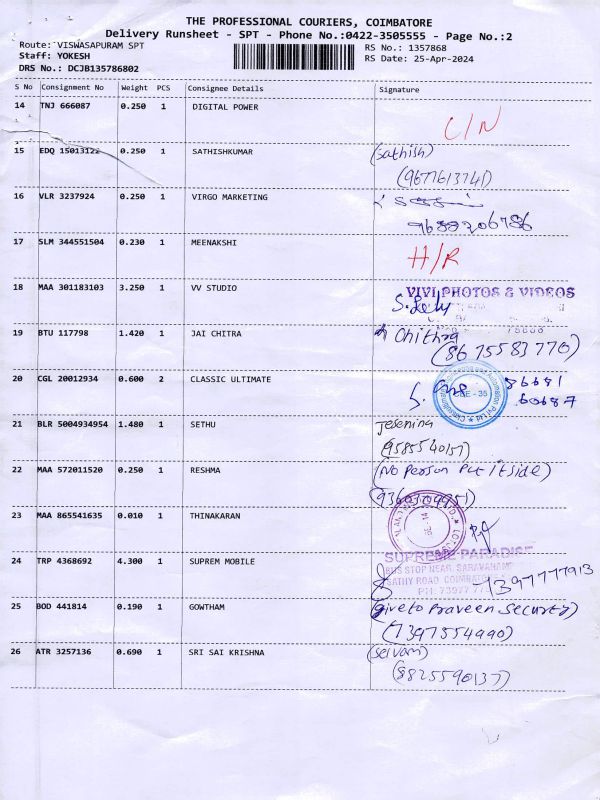 THE PROFESSIONAL COURIERS, COIMBATORE
Delivery Runsheet - SPT - Phone No.:0422-3505555 - Page No.:2
Route: VISWASAPURAM SPT
RS No.: 1357868
Staff: YOKESH
RS Date: 25-Apr-2024
DRS No.: DCJB135786802
S No Consignment No Weight PCS Consignee Details Signature
14 TNJ 666087 0.250 1 DIGITAL POWER
15 EDQ 15013122 0.250 1 SATHISHKUMAR (Sathish)
16 VLR 3237924 0.250 1 VIRGO MARKETING
9688206786
17 SLM 344551504 0.230 1 MEENAKSHI H/R
18 MAA 301183103 3.250 1 VV STUDIO VIVI PHOTOS & VIDEOS
19 BTU 117798 1.420 1 JAI CHITRA Chithra
(8675583770)
20 CGL 20012934 0.600 2 CLASSIC ULTIMATE 86681
60687
21 BLR 5004934954 1.480 1 SETHU Jesenina
(9585540157)
22 MAA 572011520 0.250 1 RESHMA (No Person Put itside)
23 MAA 865541635 0.010 1 THINAKARAN
SUPREME PARADISE
24 TRP 4368692 4.300 1 SUPREM MOBILE BUS STOP NEAR, SARAVANAM
SATHY ROAD, COIMBATORE
7397777913
25 BOD 441814 0.190 1 GOWTHAM (give to Praveen Security)
(7397554990)
26 ATR 3257136 0.690 1 SRI SAI KRISHNA (Selvam)
(8825590137)